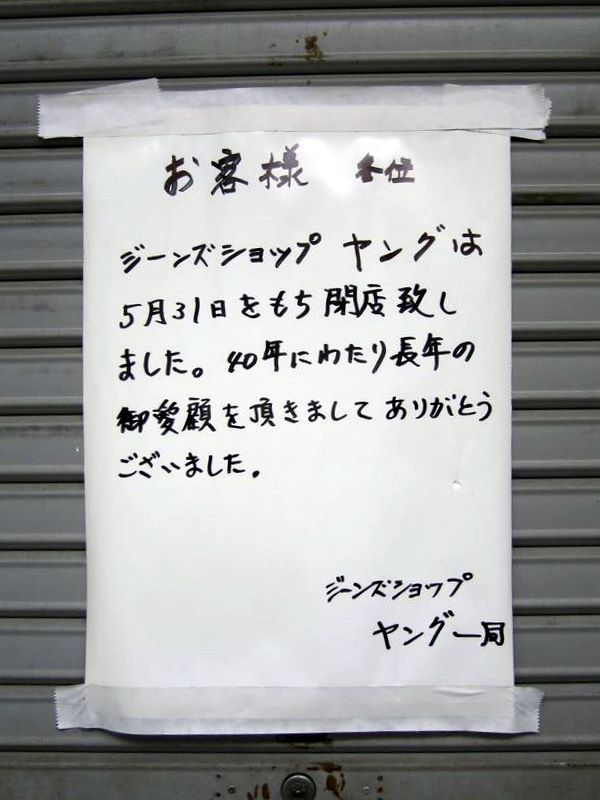 お客様 各位
ジーンズショップ ヤングは
5月31日をもち閉店致し
ました。40年にわたり長年の
御愛顧を頂きまして ありがとう
ございました。
ジーンズショップ
ヤング一同